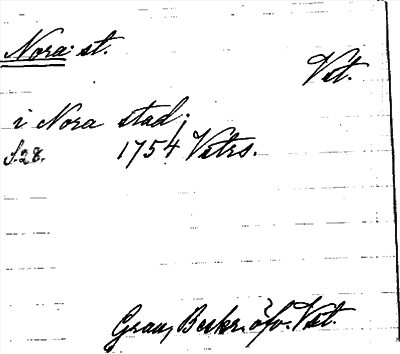 Nora: st.
Vst.
i Nora stad;
S.28. 1754 Vstrs.
Grau, Beskr. öfv. Vst.